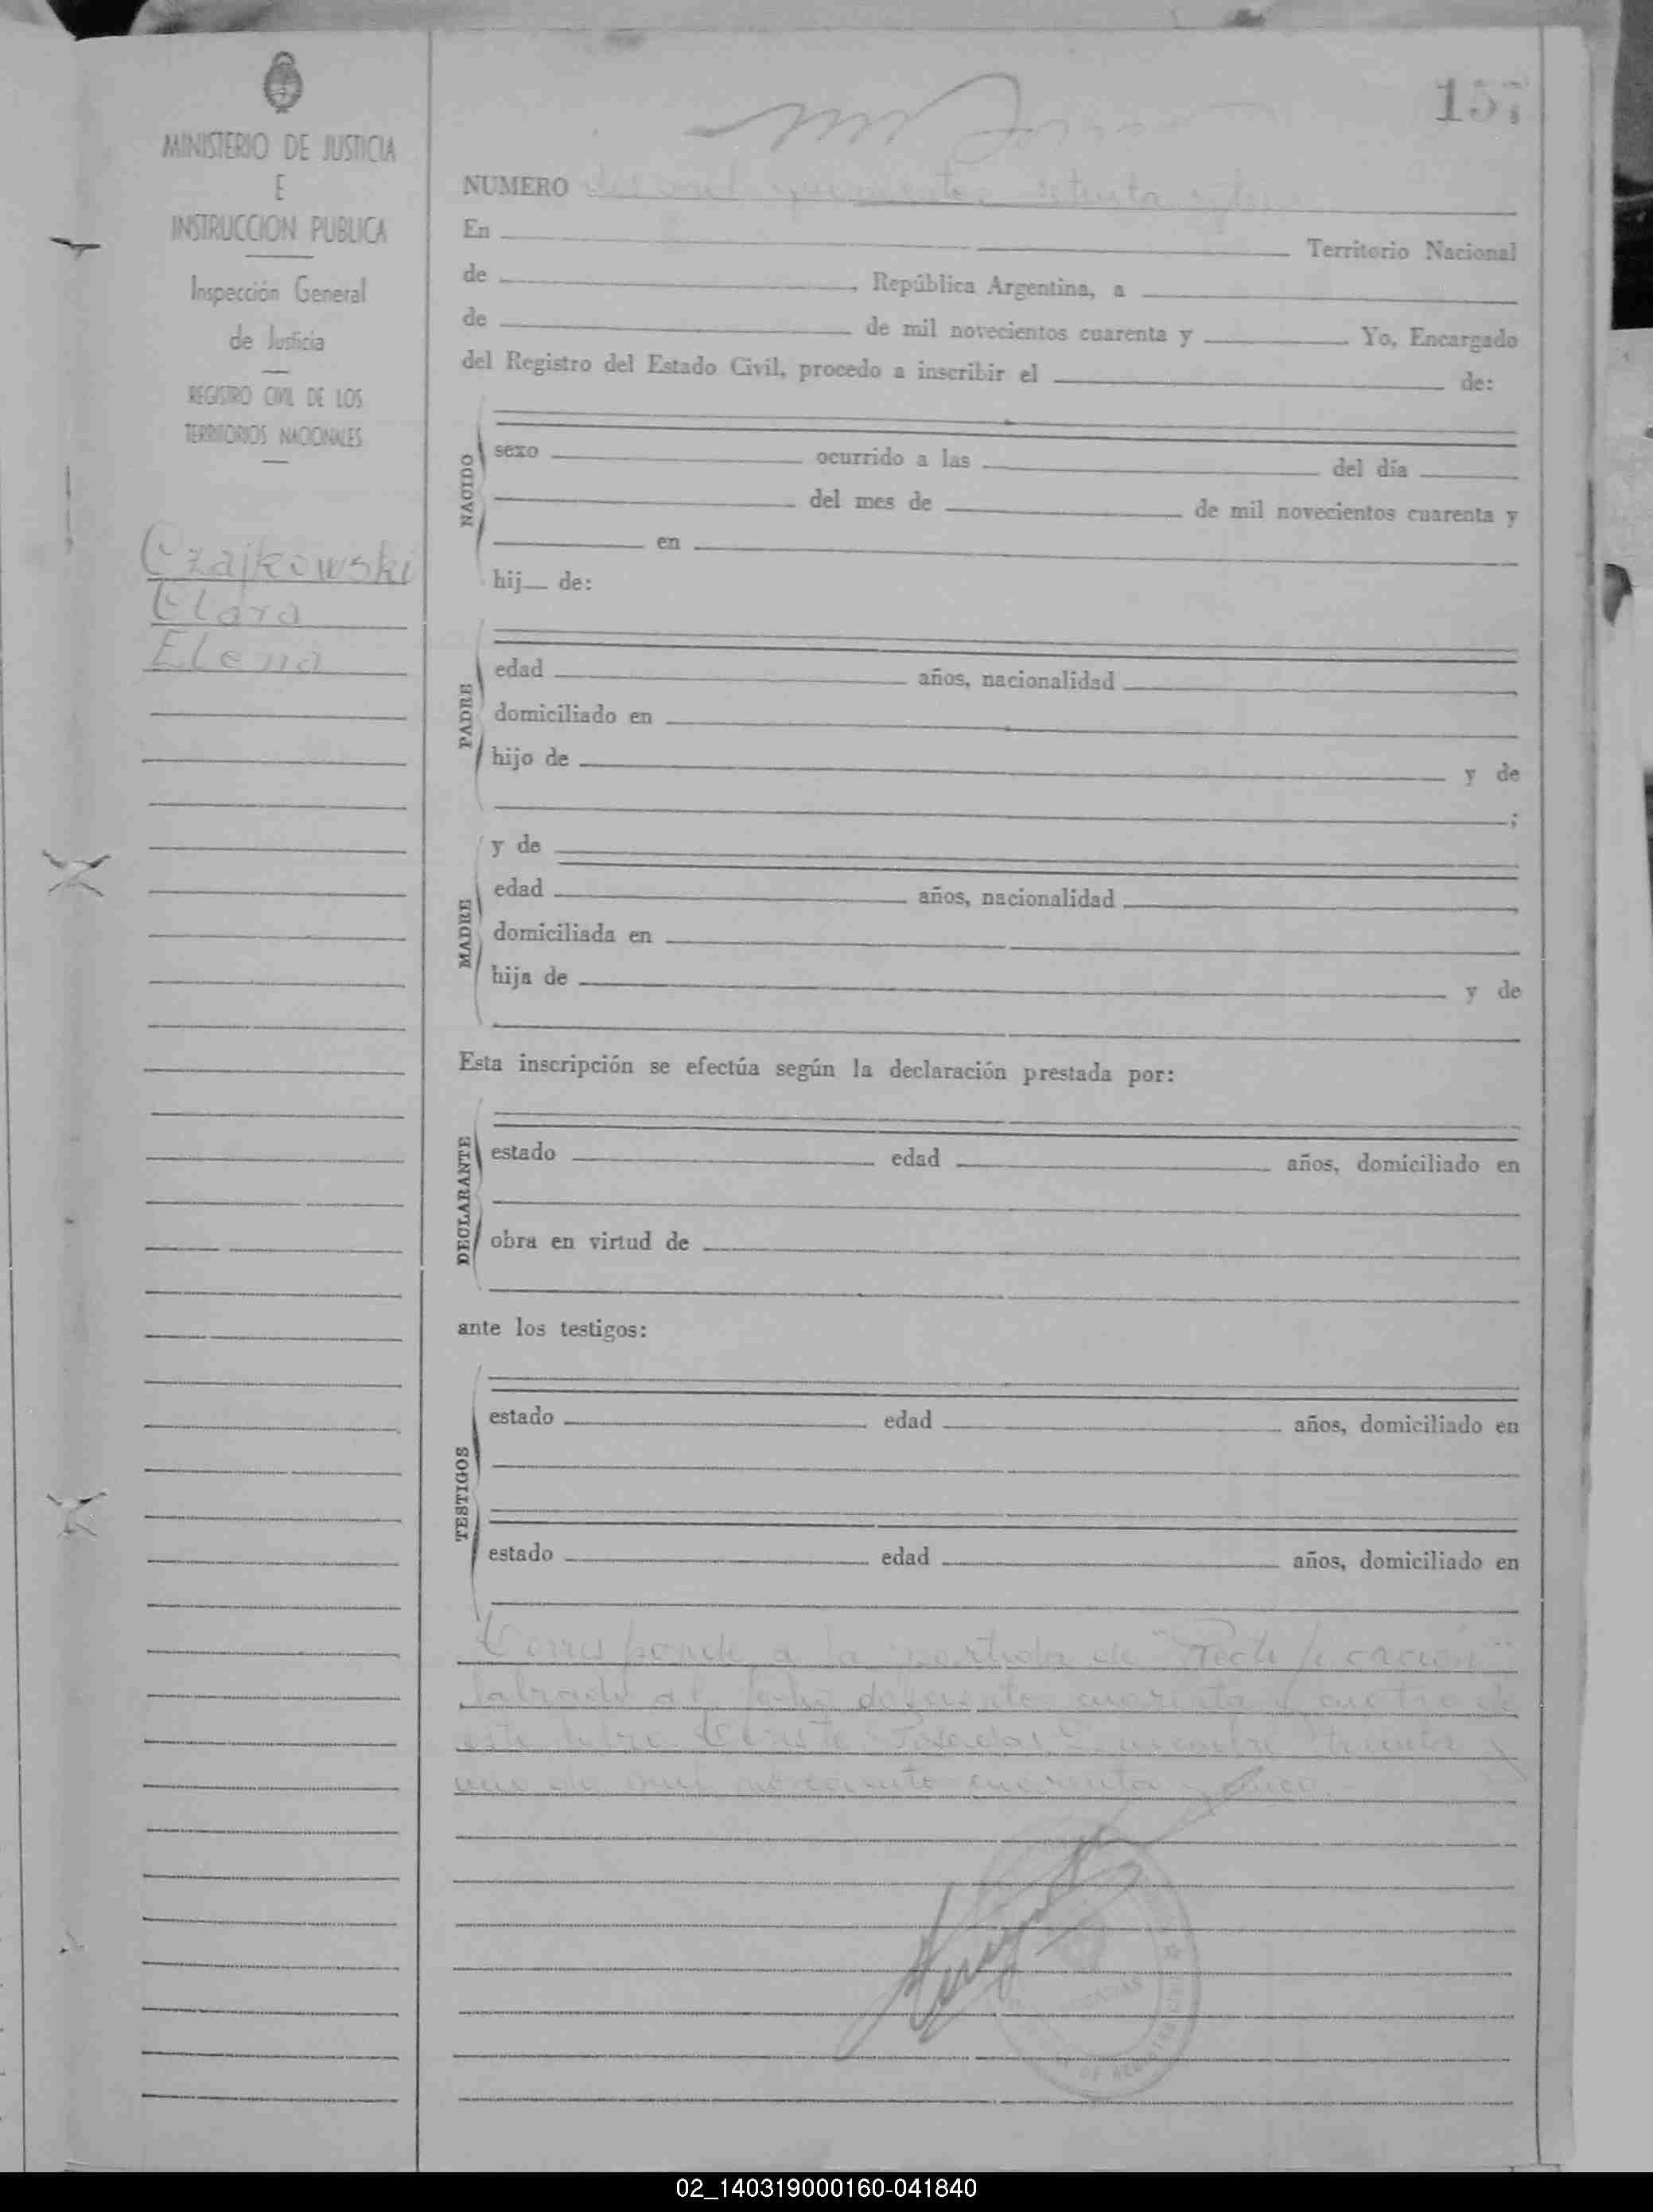 MINISTERIO DE JUSTICIA
E
INSTRUCCION PUBLICA
Inspección General
de Justicia
REGISTRO CIVIL DE LOS
TERRITORIOS NACIONALES
Czajkowski
Clara
Elena
157
NUMERO dos mil quinientos setenta y
En Territorio Nacional
de , República Argentina, a
de de mil novecientos cuarenta y . Yo, Encargado
del Registro del Estado Civil, procedo a inscribir el de:
NACIDO
sexo ocurrido a las del día
del mes de de mil novecientos cuarenta y
en
hij de:
PADRE
edad años, nacionalidad
domiciliado en
hijo de y de
;
MADRE
y de
edad años, nacionalidad
domiciliada en
hija de y de
Esta inscripción se efectúa según la declaración prestada por:
DECLARANTE
estado edad años, domiciliado en
obra en virtud de
ante los testigos:
TESTIGOS
estado edad años, domiciliado en
estado edad años, domiciliado en
Corresponde a la partida de "Rectificación"
labrada al folio doscientos cuarenta y cuatro de
este libro. Conste. Posadas treinta y
uno de mil novecientos cuarenta y cinco.
02_140319000160-041840